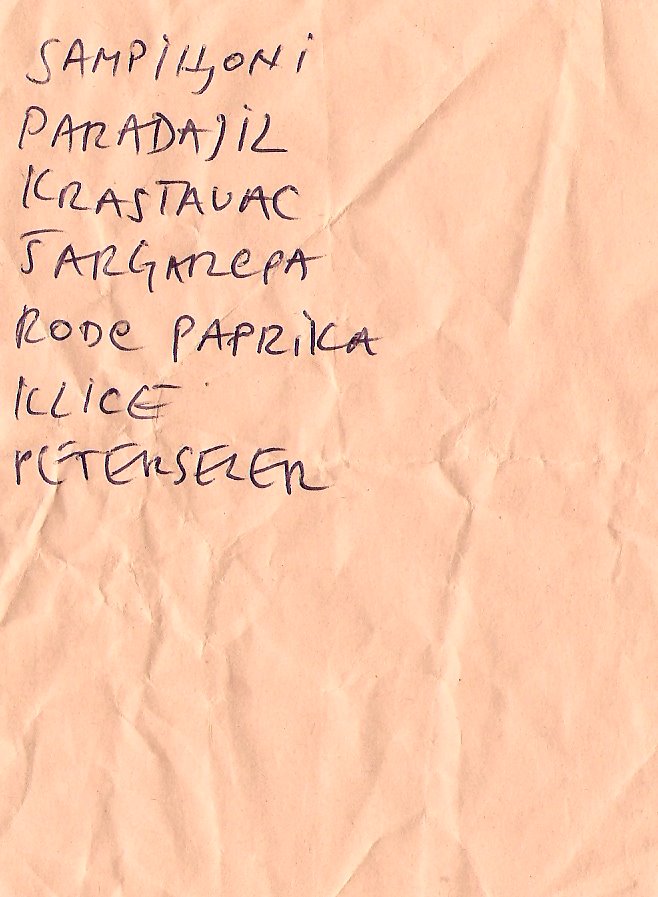 SAMPINJONI
PARADAJIL
KRASTAVAC
SARGAREPA
RODE PAPRIKA
KLICE
PETERSELER